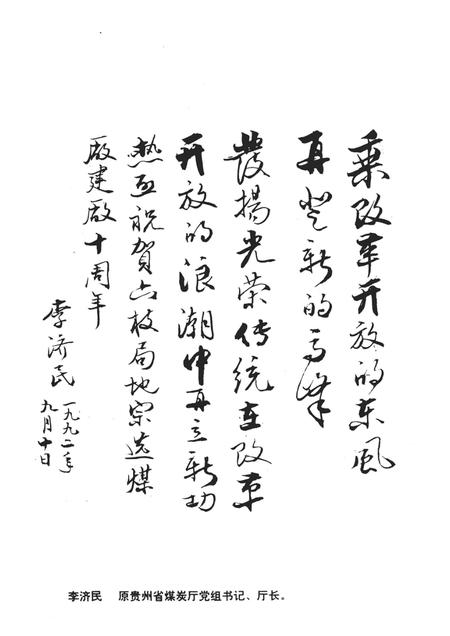 乘改革开放的东风
再登新的高峰
發揚光荣传统在改革
开放的浪潮中再立新功
热烈祝賀六枝局地宗选煤
廠建廠十周年
李济民
一九九二年
九月十日
李济民 原贵州省煤炭厅党组书记、厅长。